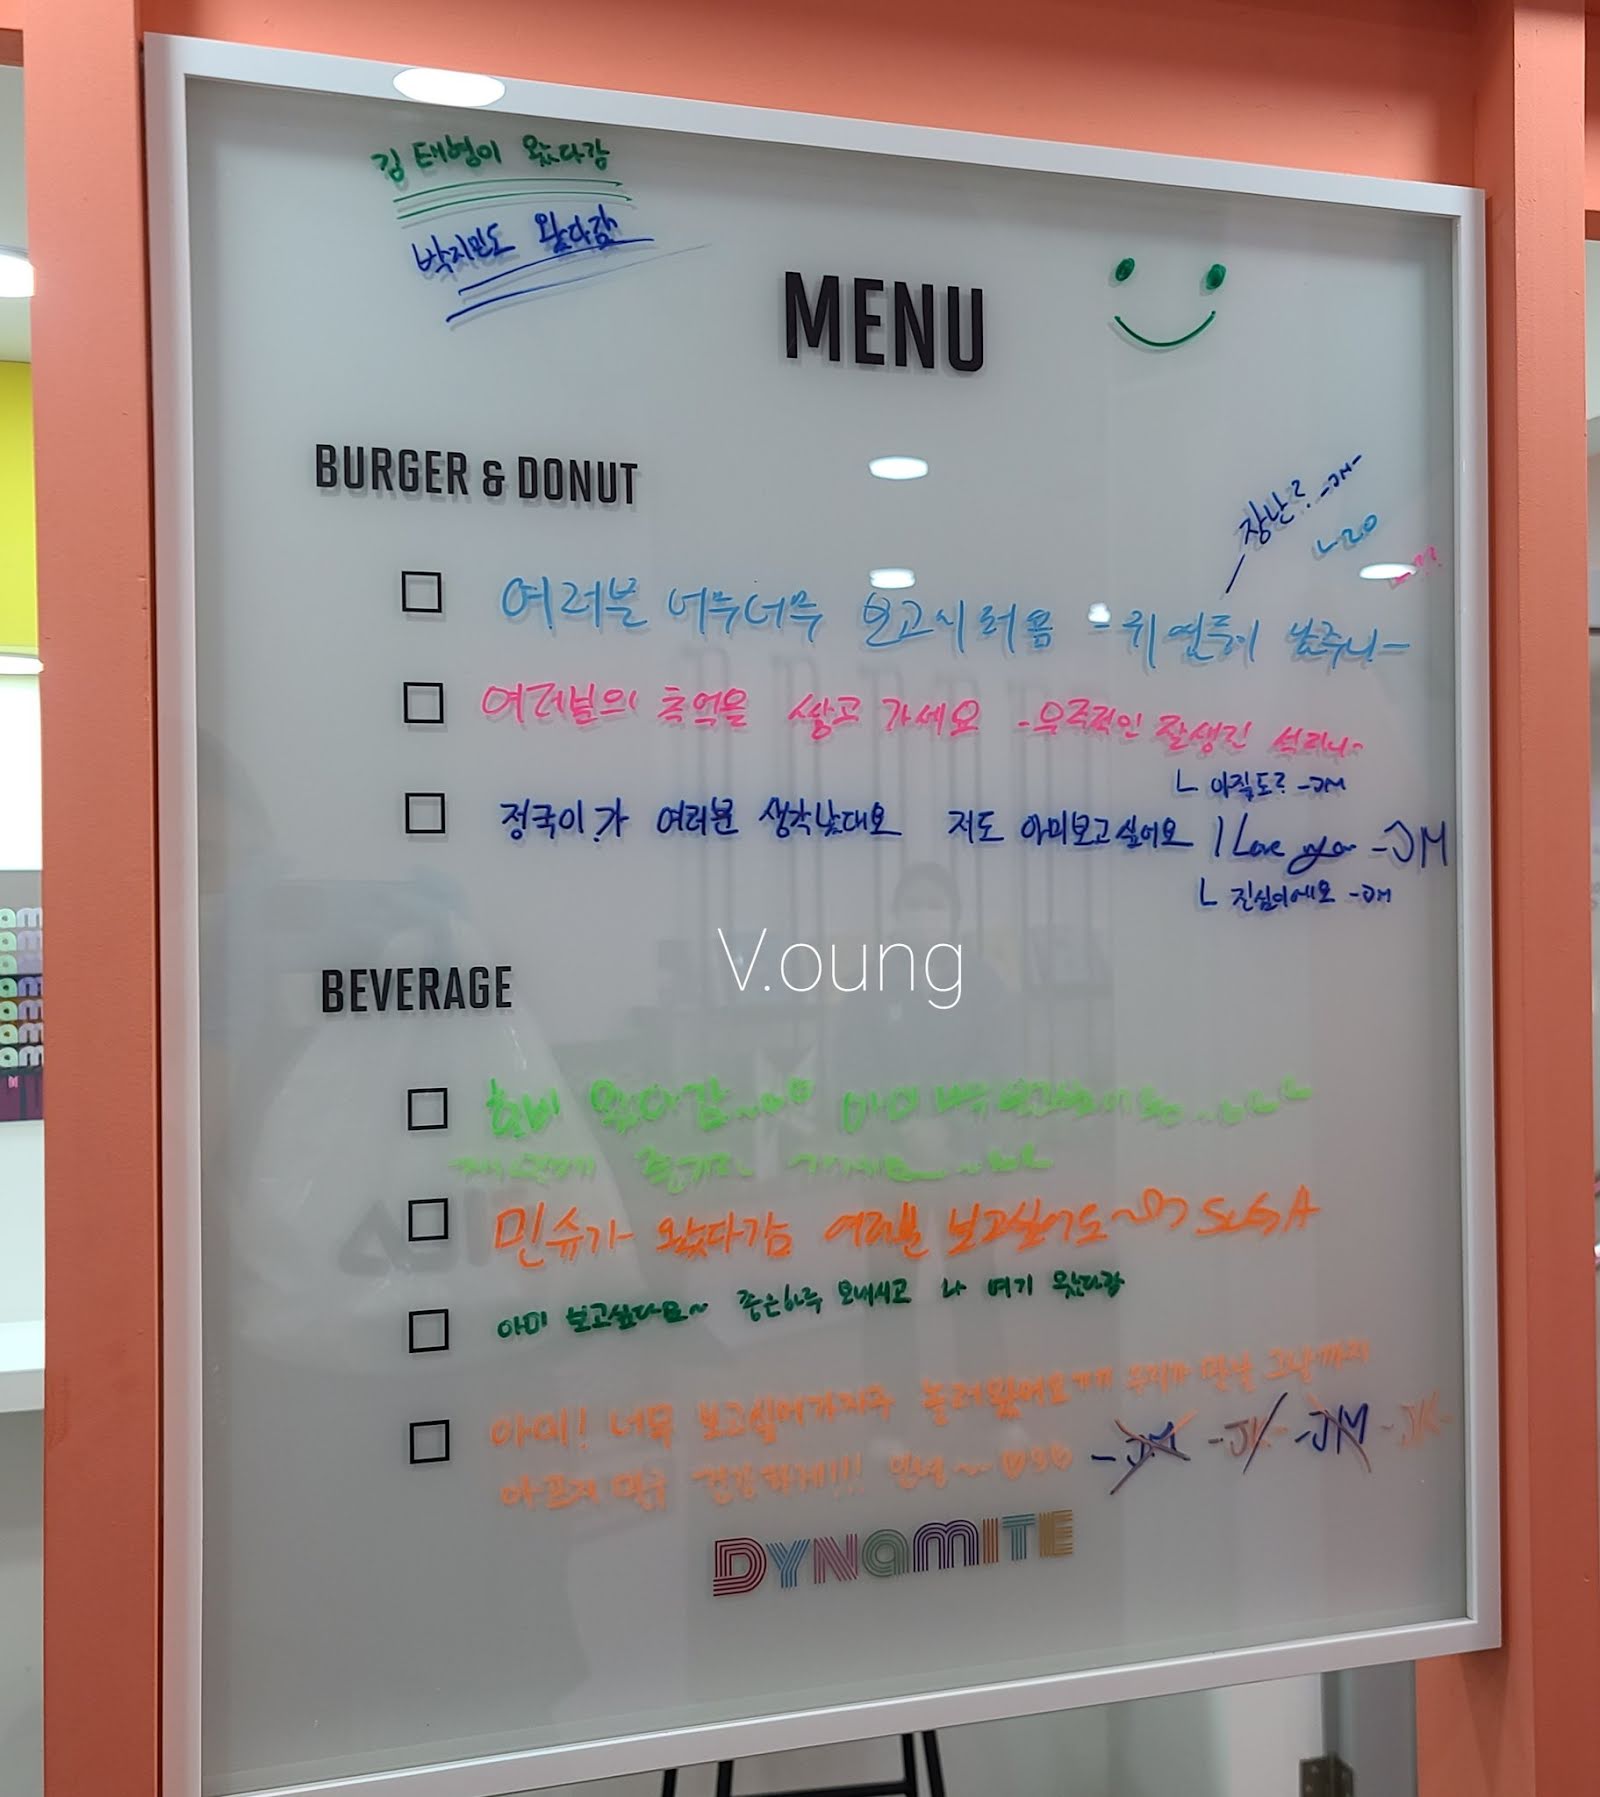 김태형이 왔다감
박지민도 왔다감
MENU
BURGER & DONUT
장난? -JM-
ㄴ20
ㄴ??
여러분 너무너무 보고시러욤 - 귀연둥이 남주니-
여러분의 추억을 쌓고 가세요 -우주적인 잘생긴 석지니-
ㄴ 아직도? -JM
정국이가 여러분 생각났대요 저도 아미보고싶어요 I Love you -JM
ㄴ 진심이에요 -JM
V.oung
BEVERAGE
호비 왔다감 아미 너무
즐기다 가세요
민슈가 왔다감 여러분 보고싶어도~ SUGA
아미 보고싶다요~ 좋은하루 보내시고 나 여기 왔다감
아미! 너무 보고싶어가지구 놀러왔어요ㅠㅠ 우리가 만날 그날까지
아프지 말구 건강하게!!! 안녕~ -JM -JK -JM -JK-
DYNAMITE